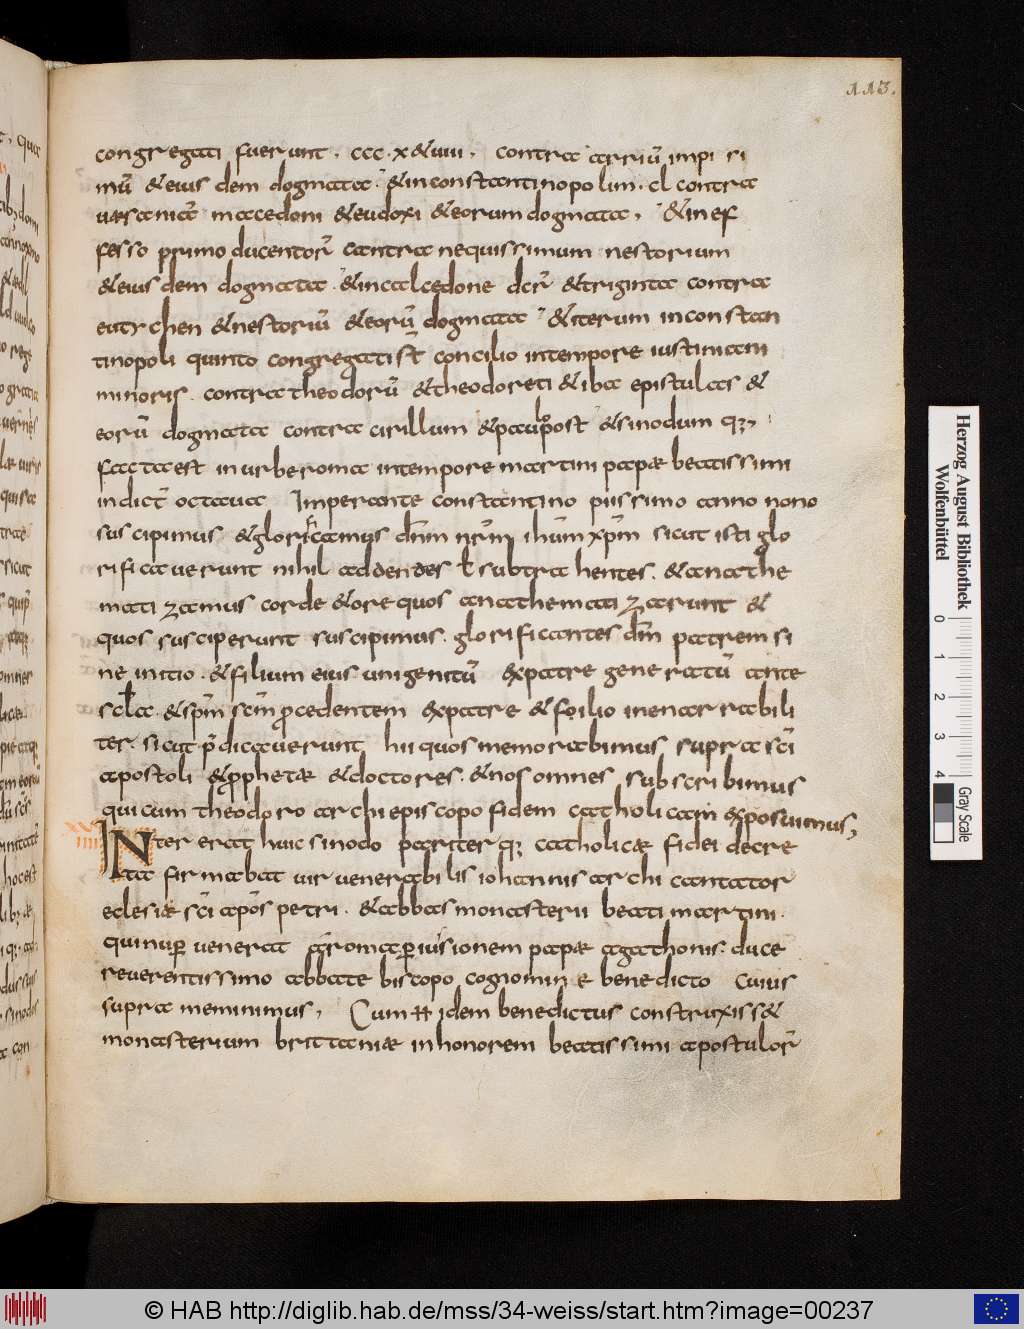 113.
congregati fuerunt . ccc . x &uiii . contra arriū impi si
mū &eius dem dogmata . &inconstantinopolim . cl contra
uaesaniā macedonii &eudoxi &eorum dogmata , &inef
fesso primo ducentor̄ contra nequissimum nestorium
&eius dem dogmata . &incalcedone dcr̄ &triginta contra
eutychen &nestoriū &eorū dogmata &iterum inconstan
tinopoli quinto congregati st̄ concilio intempore iustiniani
minoris . contra theodorū &theodoreti &iba epistulas &
eorū dogmata contra cirillum &paulo post &sinodum q;,
facta est inurbe roma intempore martini papæ beatissimi
indict̄ octaua Imperante constantino piissimo anno nono
suscipimus &glorificamus dn̄m nr̄m ihūm xp̄m sicut isti glo
rificauerunt nihil addendes ł subtrahentes . &anathe
mati zamus corde &ore quos anathemati zarunt &
quos susciperunt suscipimus . glorificantes dm̄ patrem si
ne initio . &filium eius unigenitū expatre generatū ante
scła . &spm̄ scm̄ procedentem expatre &foilio inenarrabili
ter . sicut p̄dicauerunt hii quos memorabimus supra sc̄i
apostoli &prophetæ &doctores . &nos omnes subscribimus
qui cum theodoro archiepiscopo fidem catholicam exposuimus,
XVIIII
INter erat huic sinodo pariter q; catholicæ fidei decre
ta firmabat uir uenerabilis iohannis archi cantator
eclesiæ sc̄i apōs petri . &abbas monasterii beati martini .
qui nup̄ uenerat aromap̄ iusionem papæ agathonis . duce
reuerentissimo abbate biscopo cognomine benedicto Cuius
supra meminimus , Cum ħ idem benedictus construxiss&
monasterium brittaniæ inhonorem beatissimi apostulor̄
Herzog August Bibliothek
Wolfenbüttel
0 1 2 3 4
Gray Scale
© HAB http://diglib.hab.de/mss/34-weiss/start.htm?image=00237